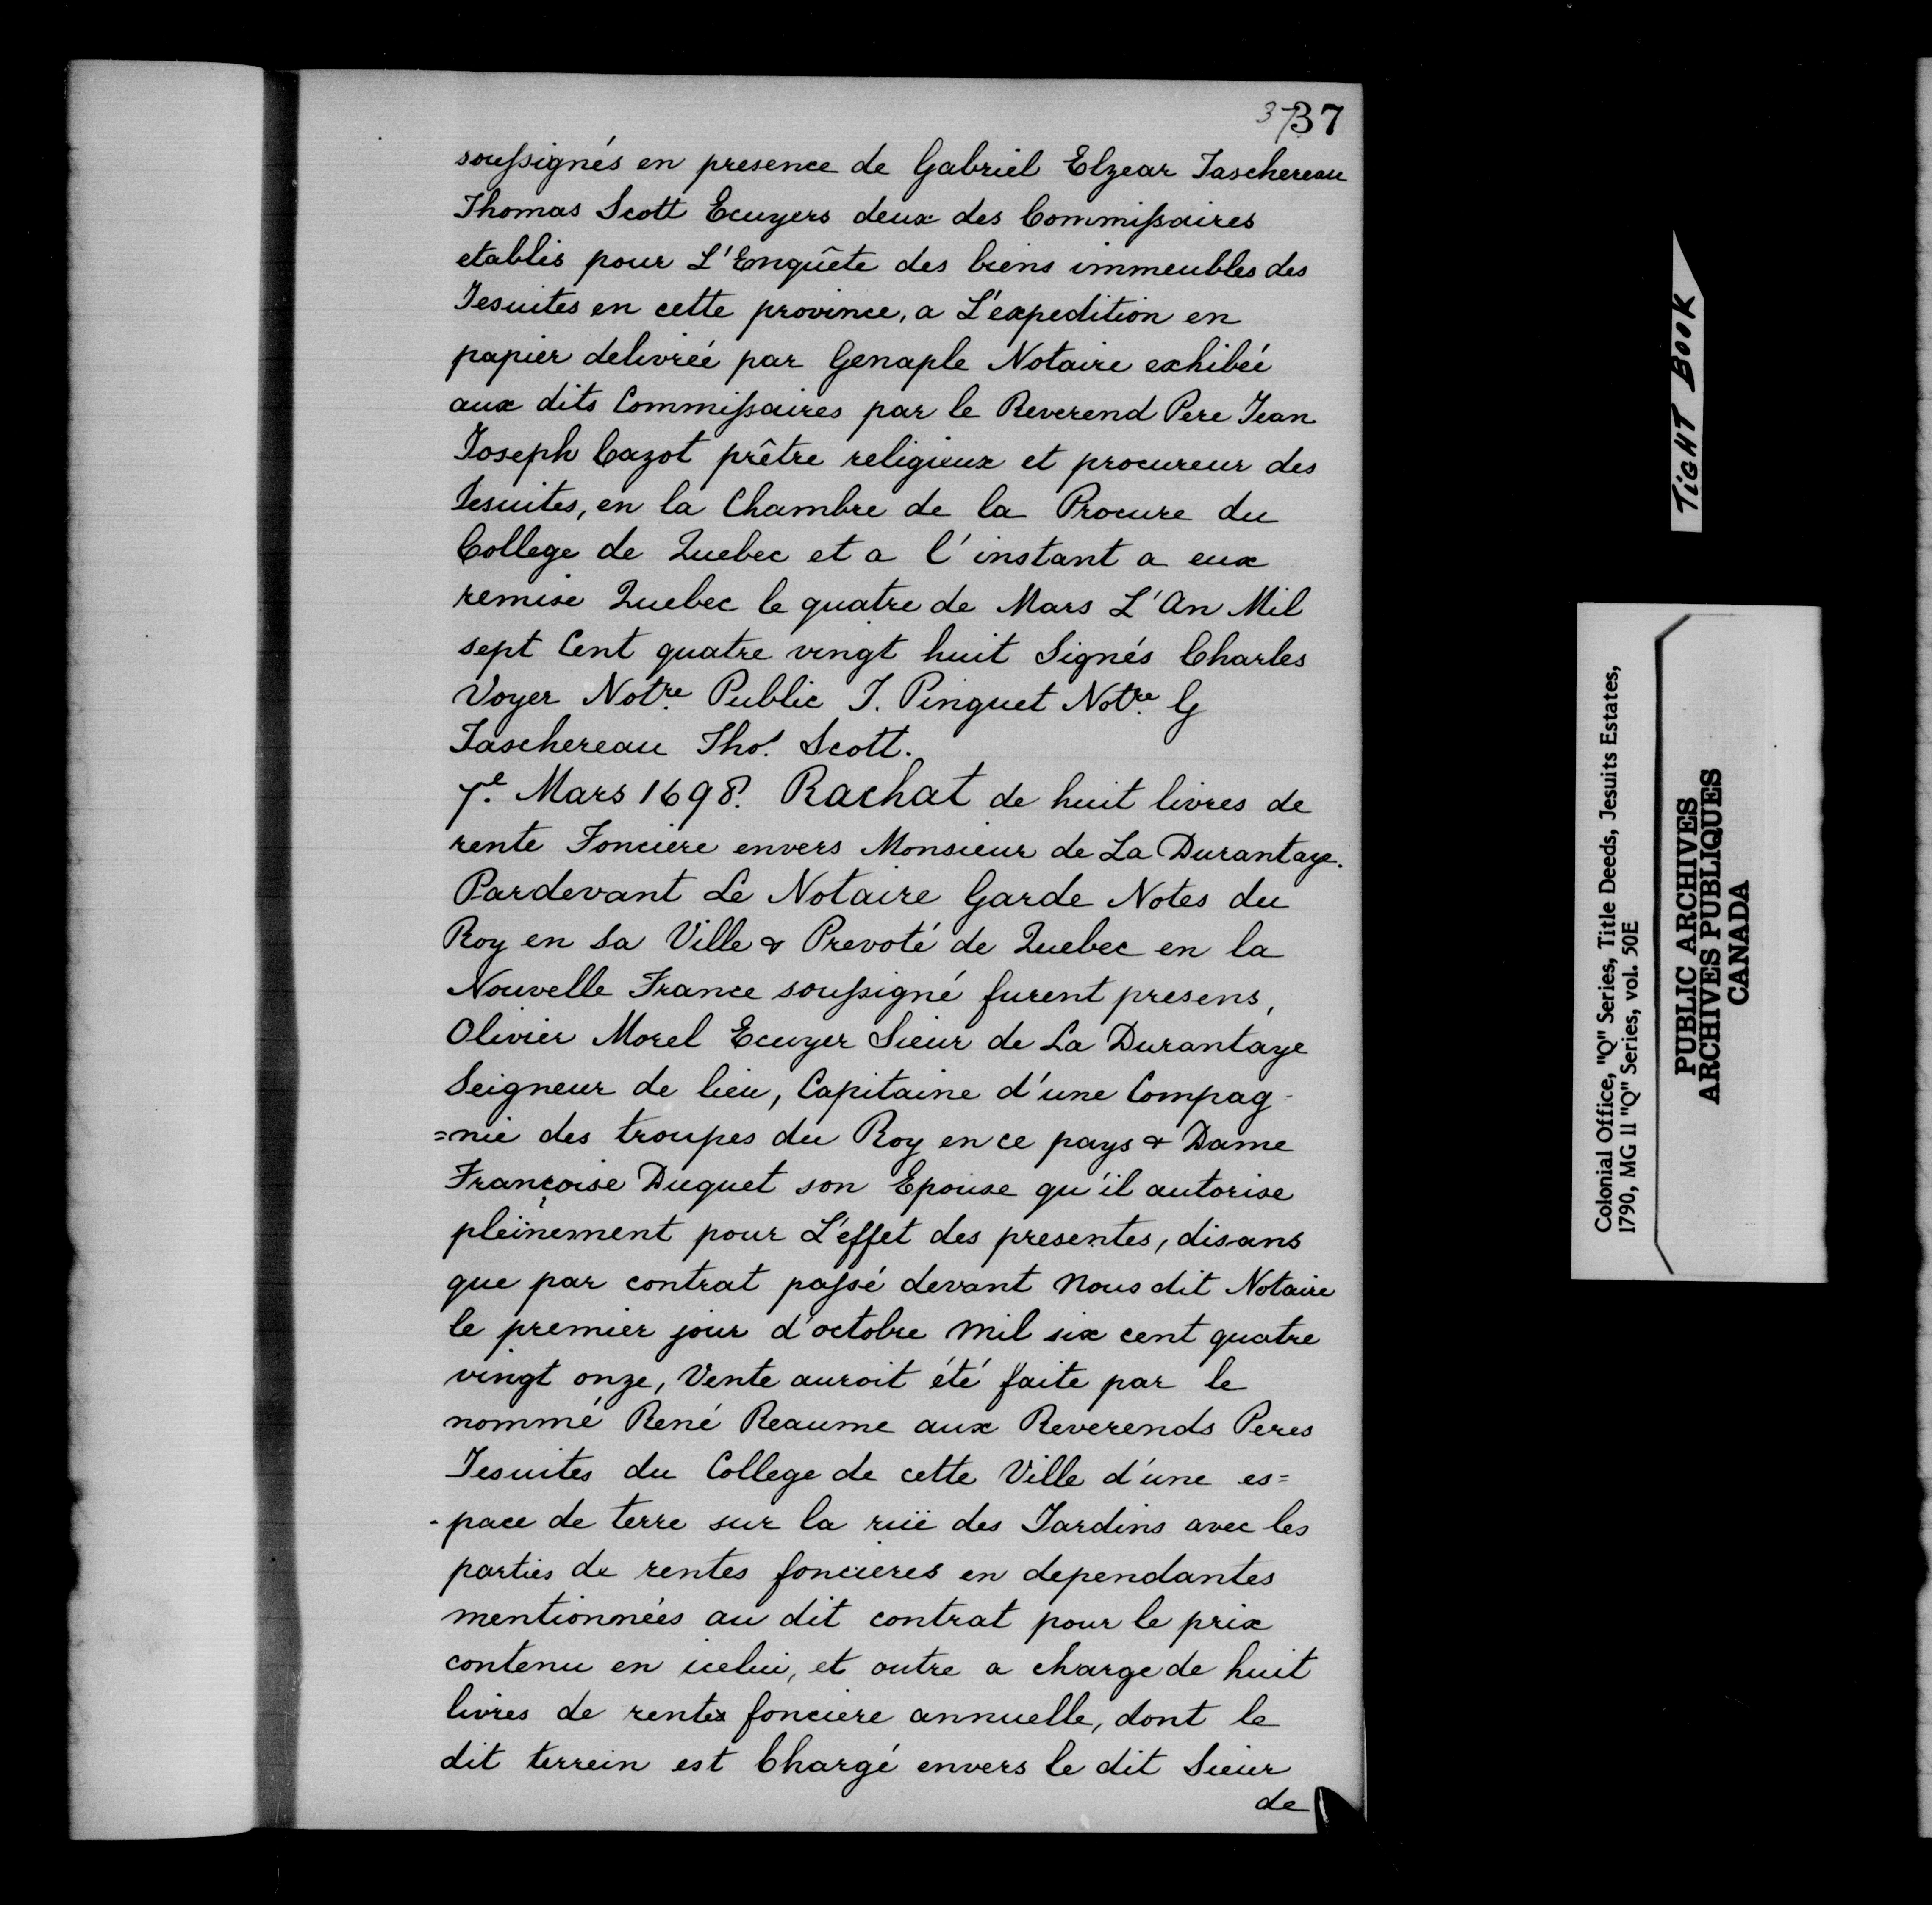 37
37
soussignés en presence de Gabriel Elzear Taschereau
Thomas Scott Ecuyers deux des Commissaires
etablis pour L'Enquête des biens immeubles des
Jesuites en cette province, a L'expedition en
papier delivréé par Genaple Notaire exhibéé
aux dits Commissaires par le Reverend Pere Jean
Joseph Cazot prêtre religieux et procureur des
Jesuites, en la Chambre de la Procure du
College de Quebec et a l'instant a eux
remise Quebec le quatre de Mars L'An Mil
sept Cent quatre vingt huit Signés Charles
Voyer Notre Public J. Pinguet Notre G
Taschereau Thos. Scott.
7e. Mars 1698. Rachat de huit livres de
rente Fonciere envers Monsieur de La Durantaye.
Pardevant Le Notaire Garde Notes du
Roy en sa Ville & Prevoté de Quebec en la
Nouvelle France soussigné furent presens,
Olivier Morel Ecuyer Sieur de La Durantaye
Seigneur de lieu, Capitaine d'une Compag-
=nie des troupes du Roy en ce pays & Dame
Françoise Duquet son Epouse qu'il autorise
pleinement pour L'effet des presentes, disans
que par contrat passé devant Nous dit Notaire
le premier jour d'octobre Mil six cent quatre
vingt onze, Vente auroit été faite par le
nommé René Reaume aux Reverends Peres
Jesuites du College de cette Ville d'une es=
-pace de terre sur la rüe des Jardins avec les
parties de rentes foncieres en dependantes
mentionnées au dit contrat pour le prix
contenu en icelui, et outre a charge de huit
livres de rente fonciere annuelle, dont le
dit terrein est Chargé envers le dit Sieur
de
TIGHT BOOK
Colonial Office, "Q" Series, Title Deeds, Jesuits Estates,
1790, MG 11 "Q" Series, vol. 50E
PUBLIC ARCHIVES
ARCHIVES PUBLIQUES
CANADA